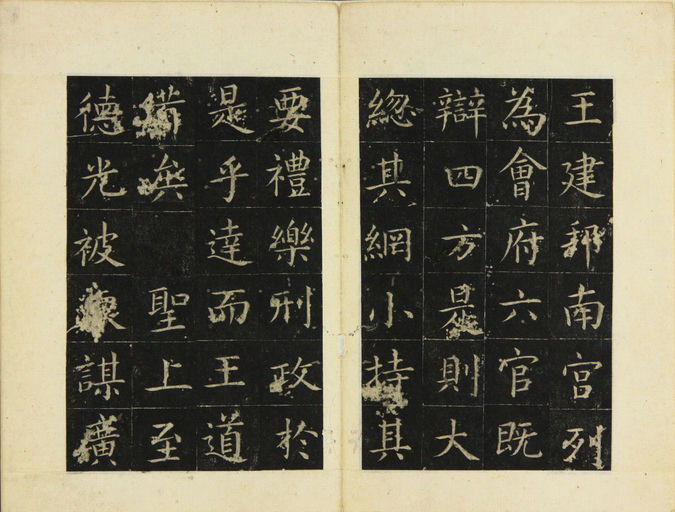 王建邦南宮列
為會府六官既
辯四方是則大
緫其綱小持其
要禮樂刑政於
是乎達而王道
備矣 聖上至
德光被 謀廣